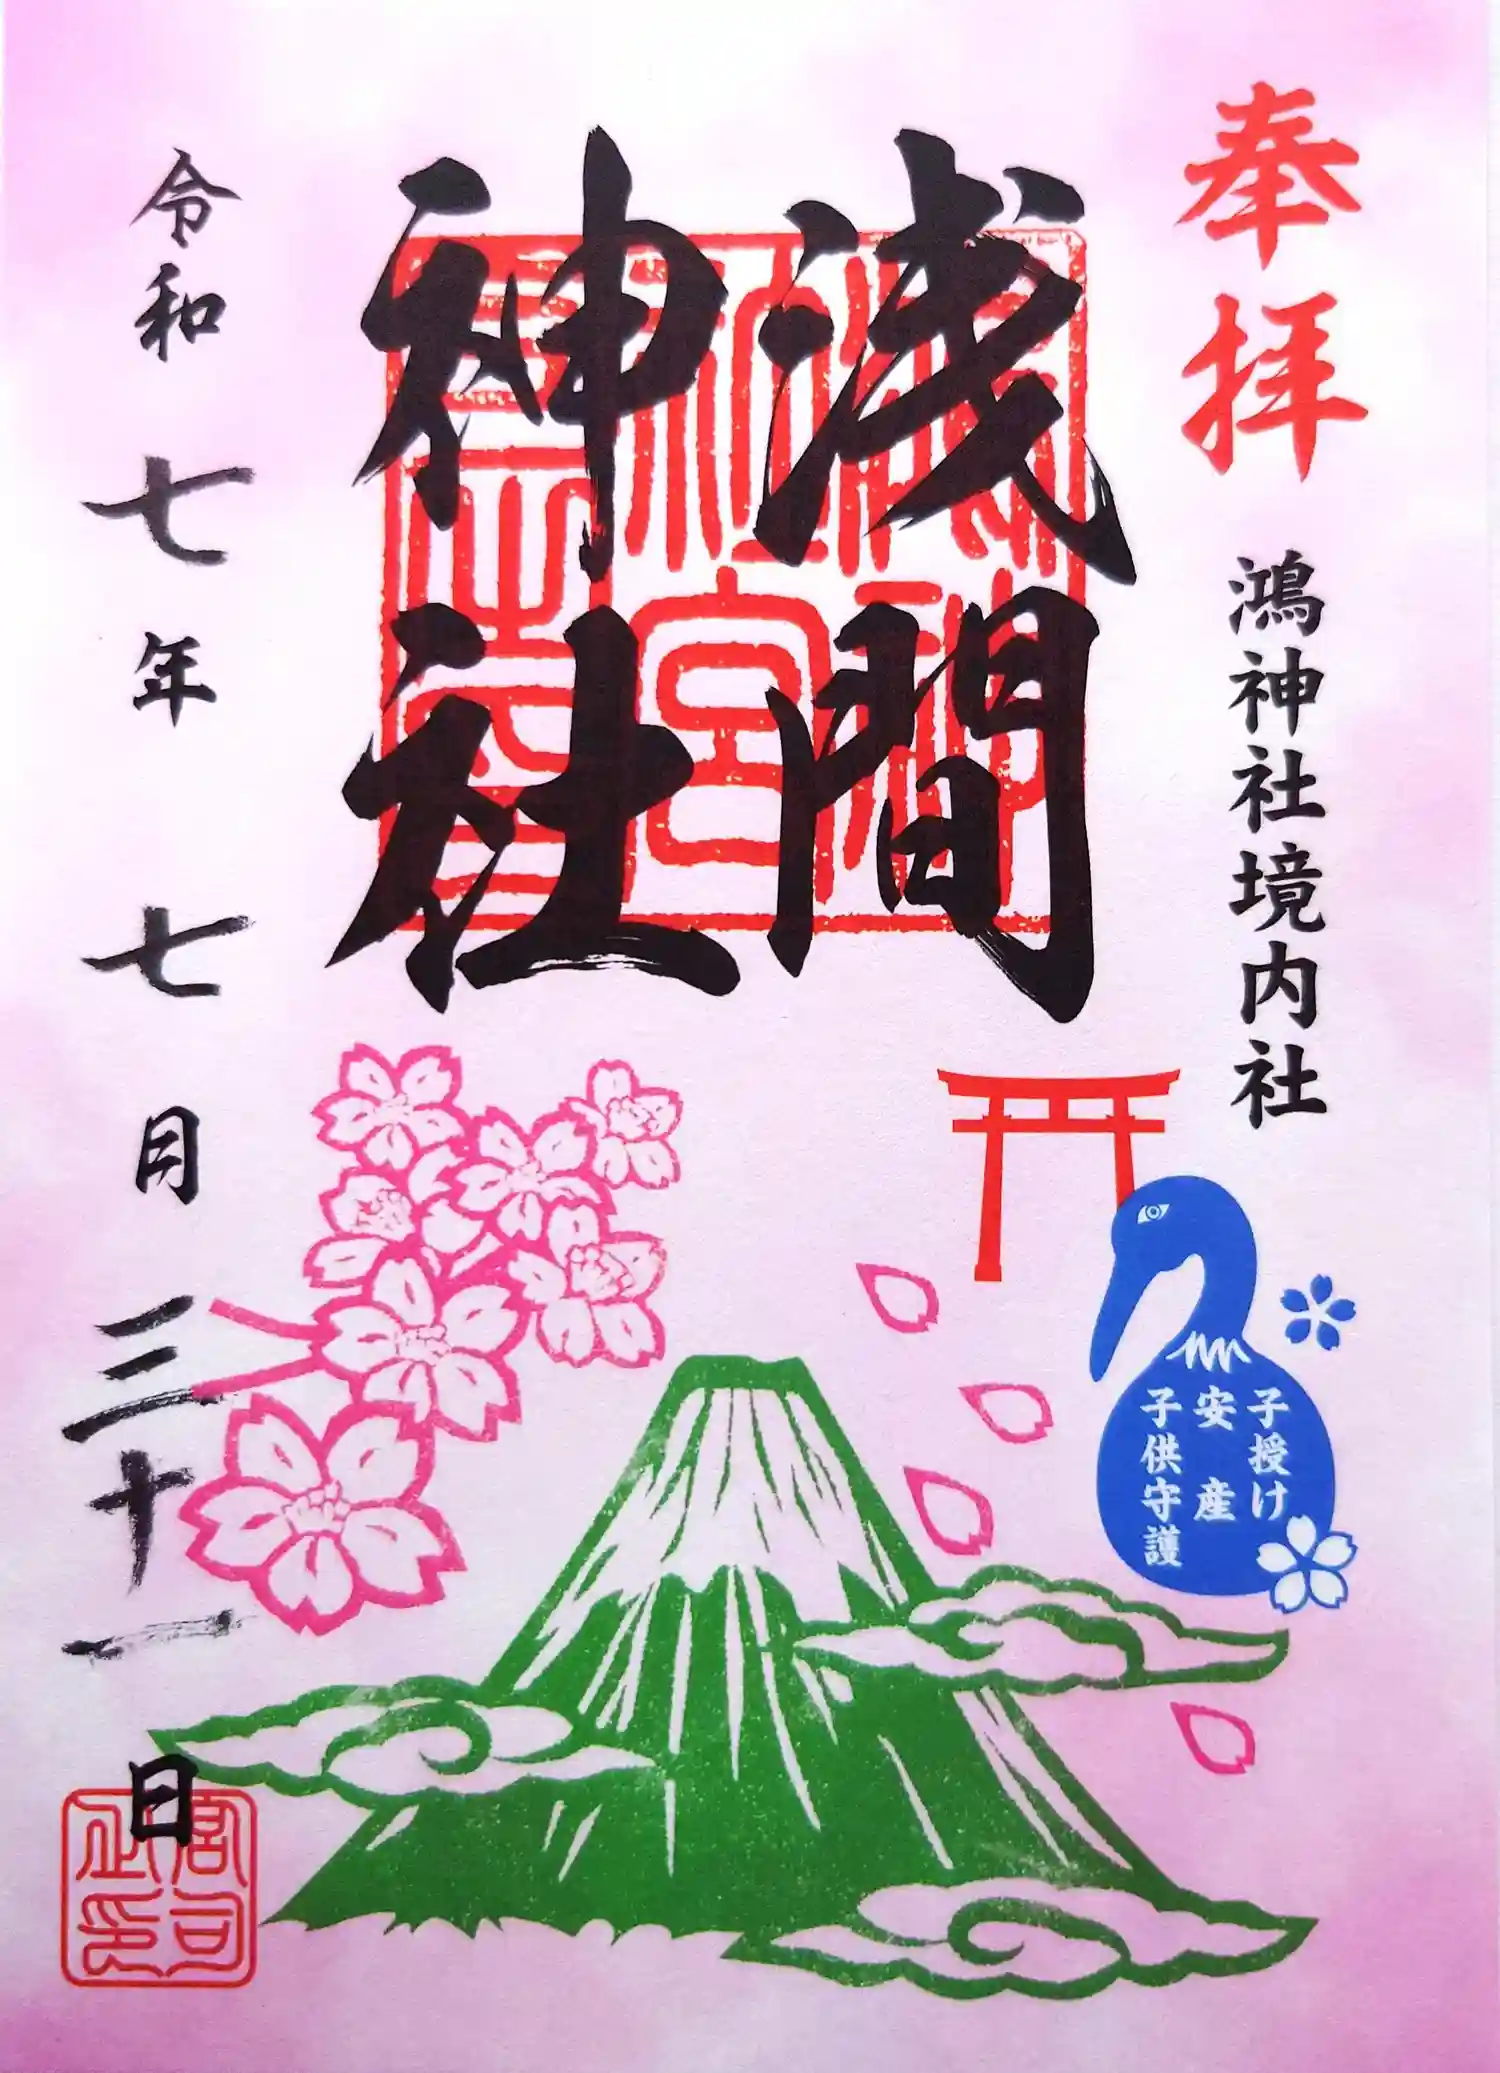 奉拝
鴻神社境内社
浅間
神社
子授け
安産
子供守護
令和七年七月三十一日
宮司之印